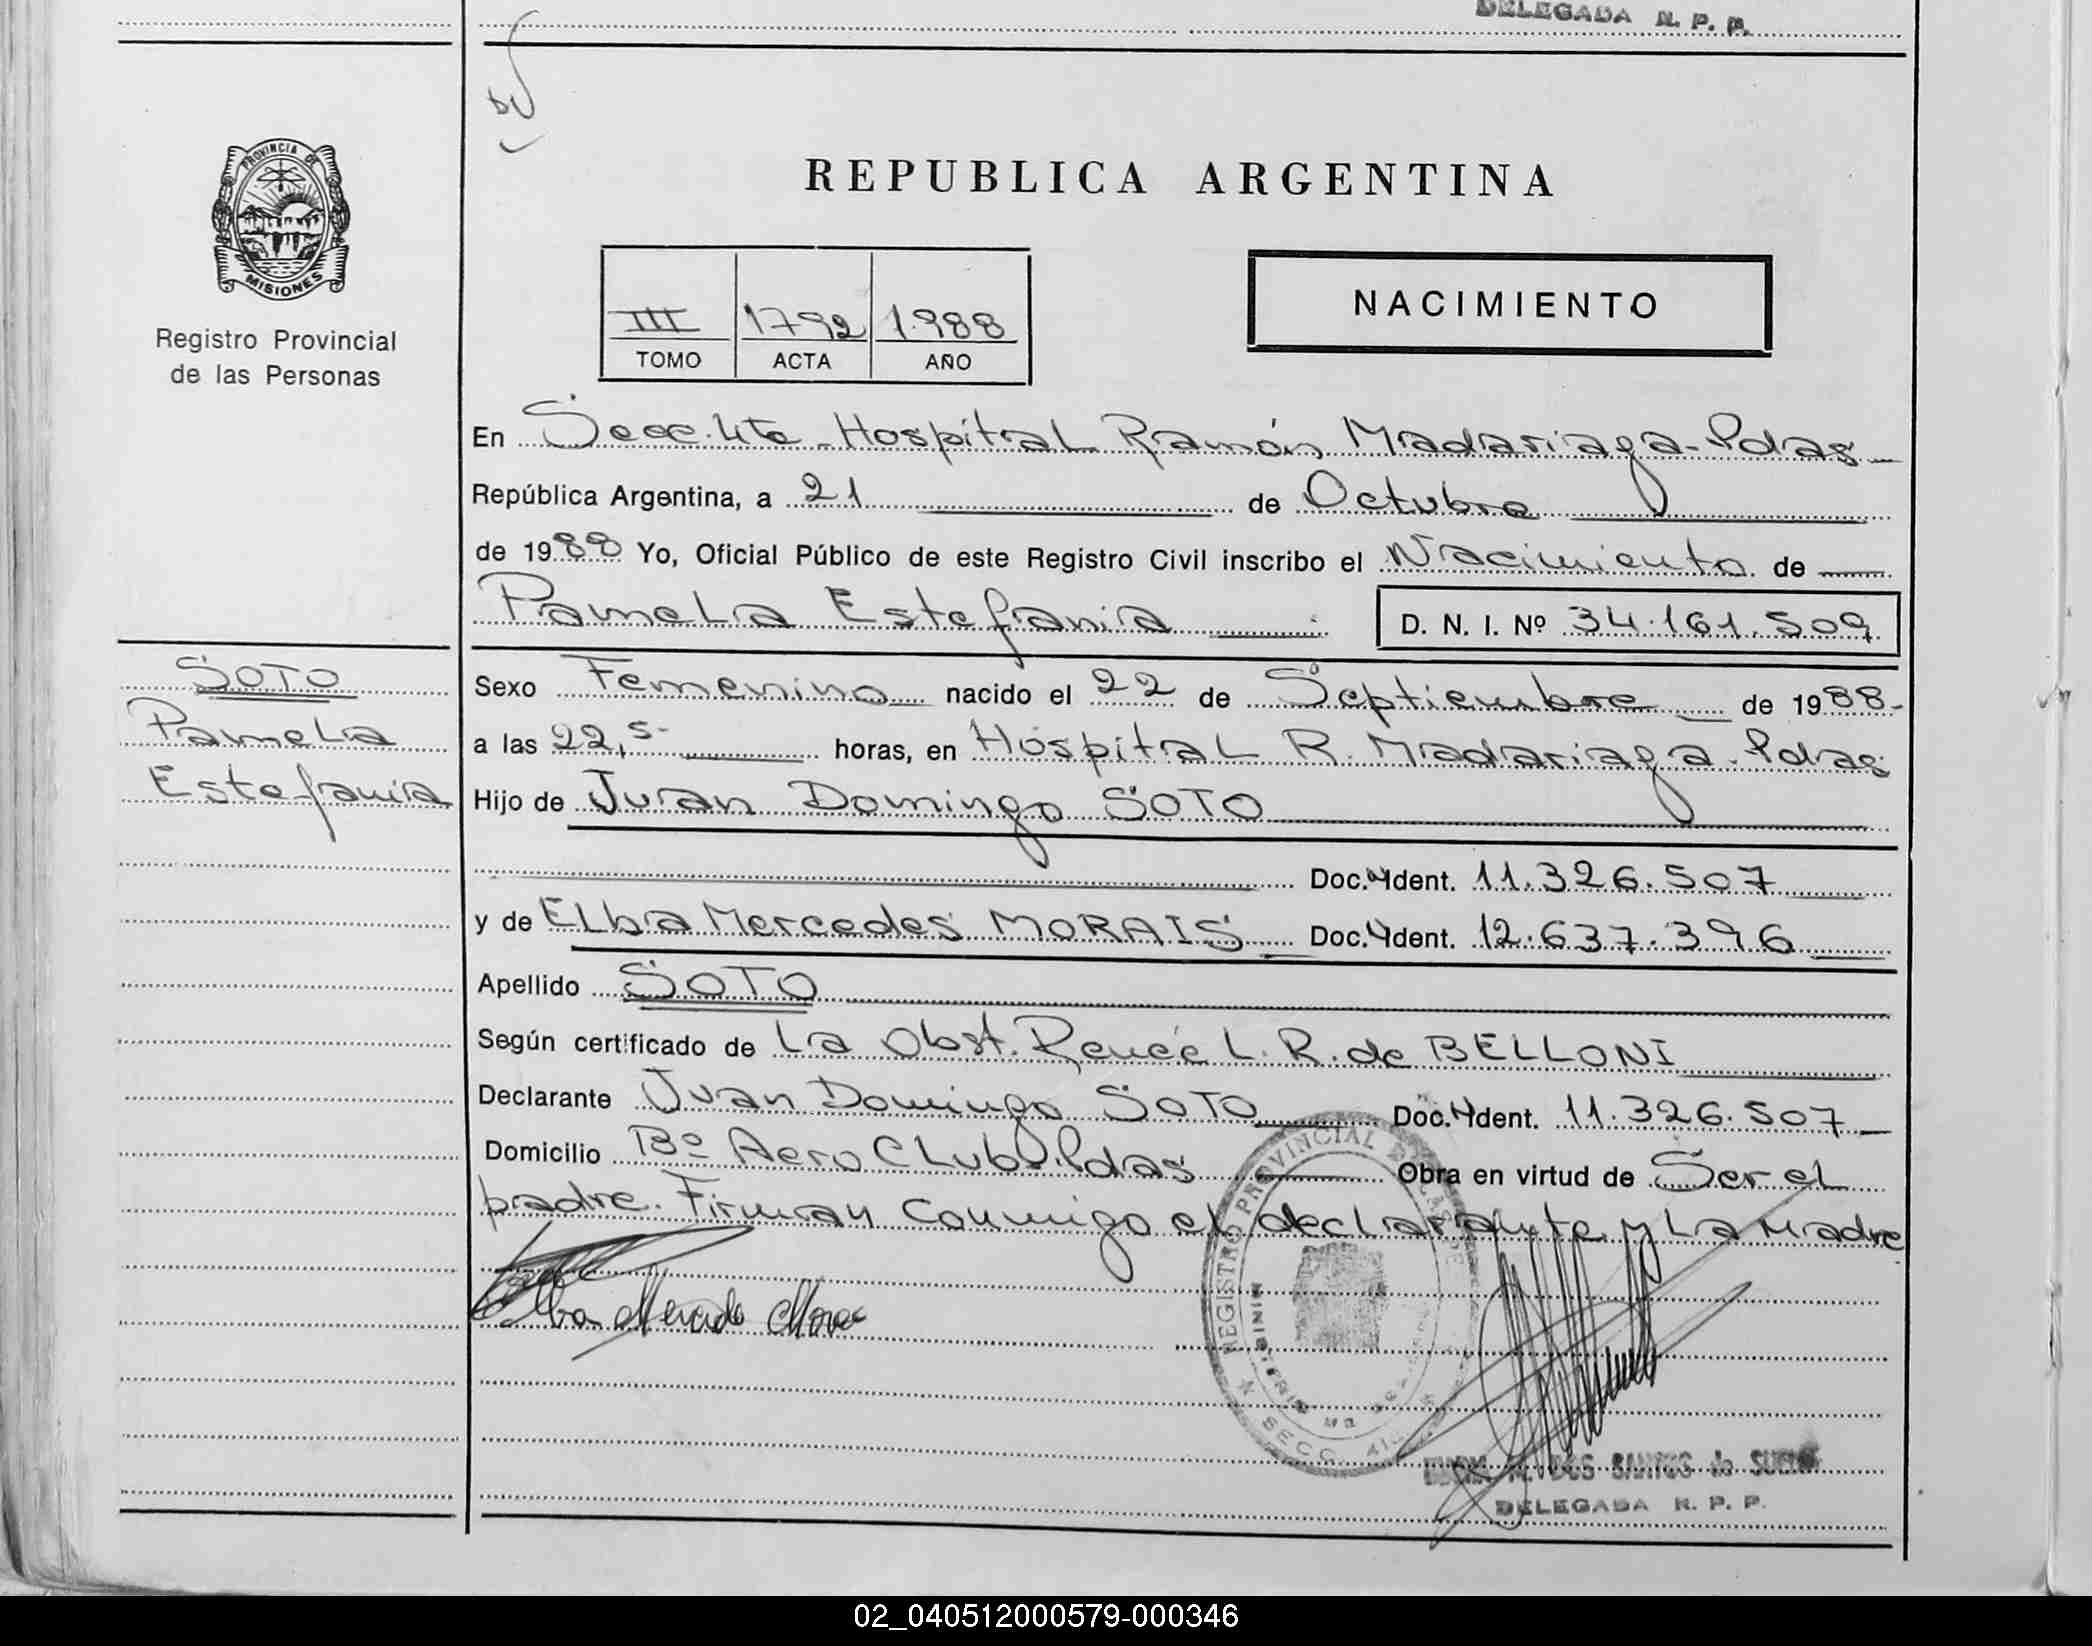 DELEGADA R. P. P.
PROVINCIA DE
MISIONES
Registro Provincial
de las Personas
REPUBLICA ARGENTINA
III 1792 1.988
TOMO ACTA AÑO
NACIMIENTO
En Secc. 4ta - Hospital Ramón Madariaga - Pdas -
República Argentina, a 21 de Octubre
de 1988 Yo, Oficial Público de este Registro Civil inscribo el Nacimiento de
Pamela Estefanía D. N. I. Nº 34.161.509
SOTO
Pamela
Estefanía
Sexo Femenino nacido el 22 de Septiembre de 1988-
a las 22,5- horas, en Hospital R. Madariaga - Pdas
Hijo de Juan Domingo SOTO
Doc. Ident. 11.326.507
y de Elba Mercedes MORAIS Doc. Ident. 12.637.396
Apellido SOTO
Según certificado de La Obst. Reneé L. R. de BELLONI
Declarante Juan Domingo SOTO Doc. Ident. 11.326.507
Domicilio Bº Aero Club. Pdas Obra en virtud de Ser el
padre. Firman Conmigo el declarante y La Madre
Elba
REGISTRO PROVINCIAL DE LAS
SECC.
DOS SANTOS de
DELEGADA R. P. P.
02_040512000579-000346